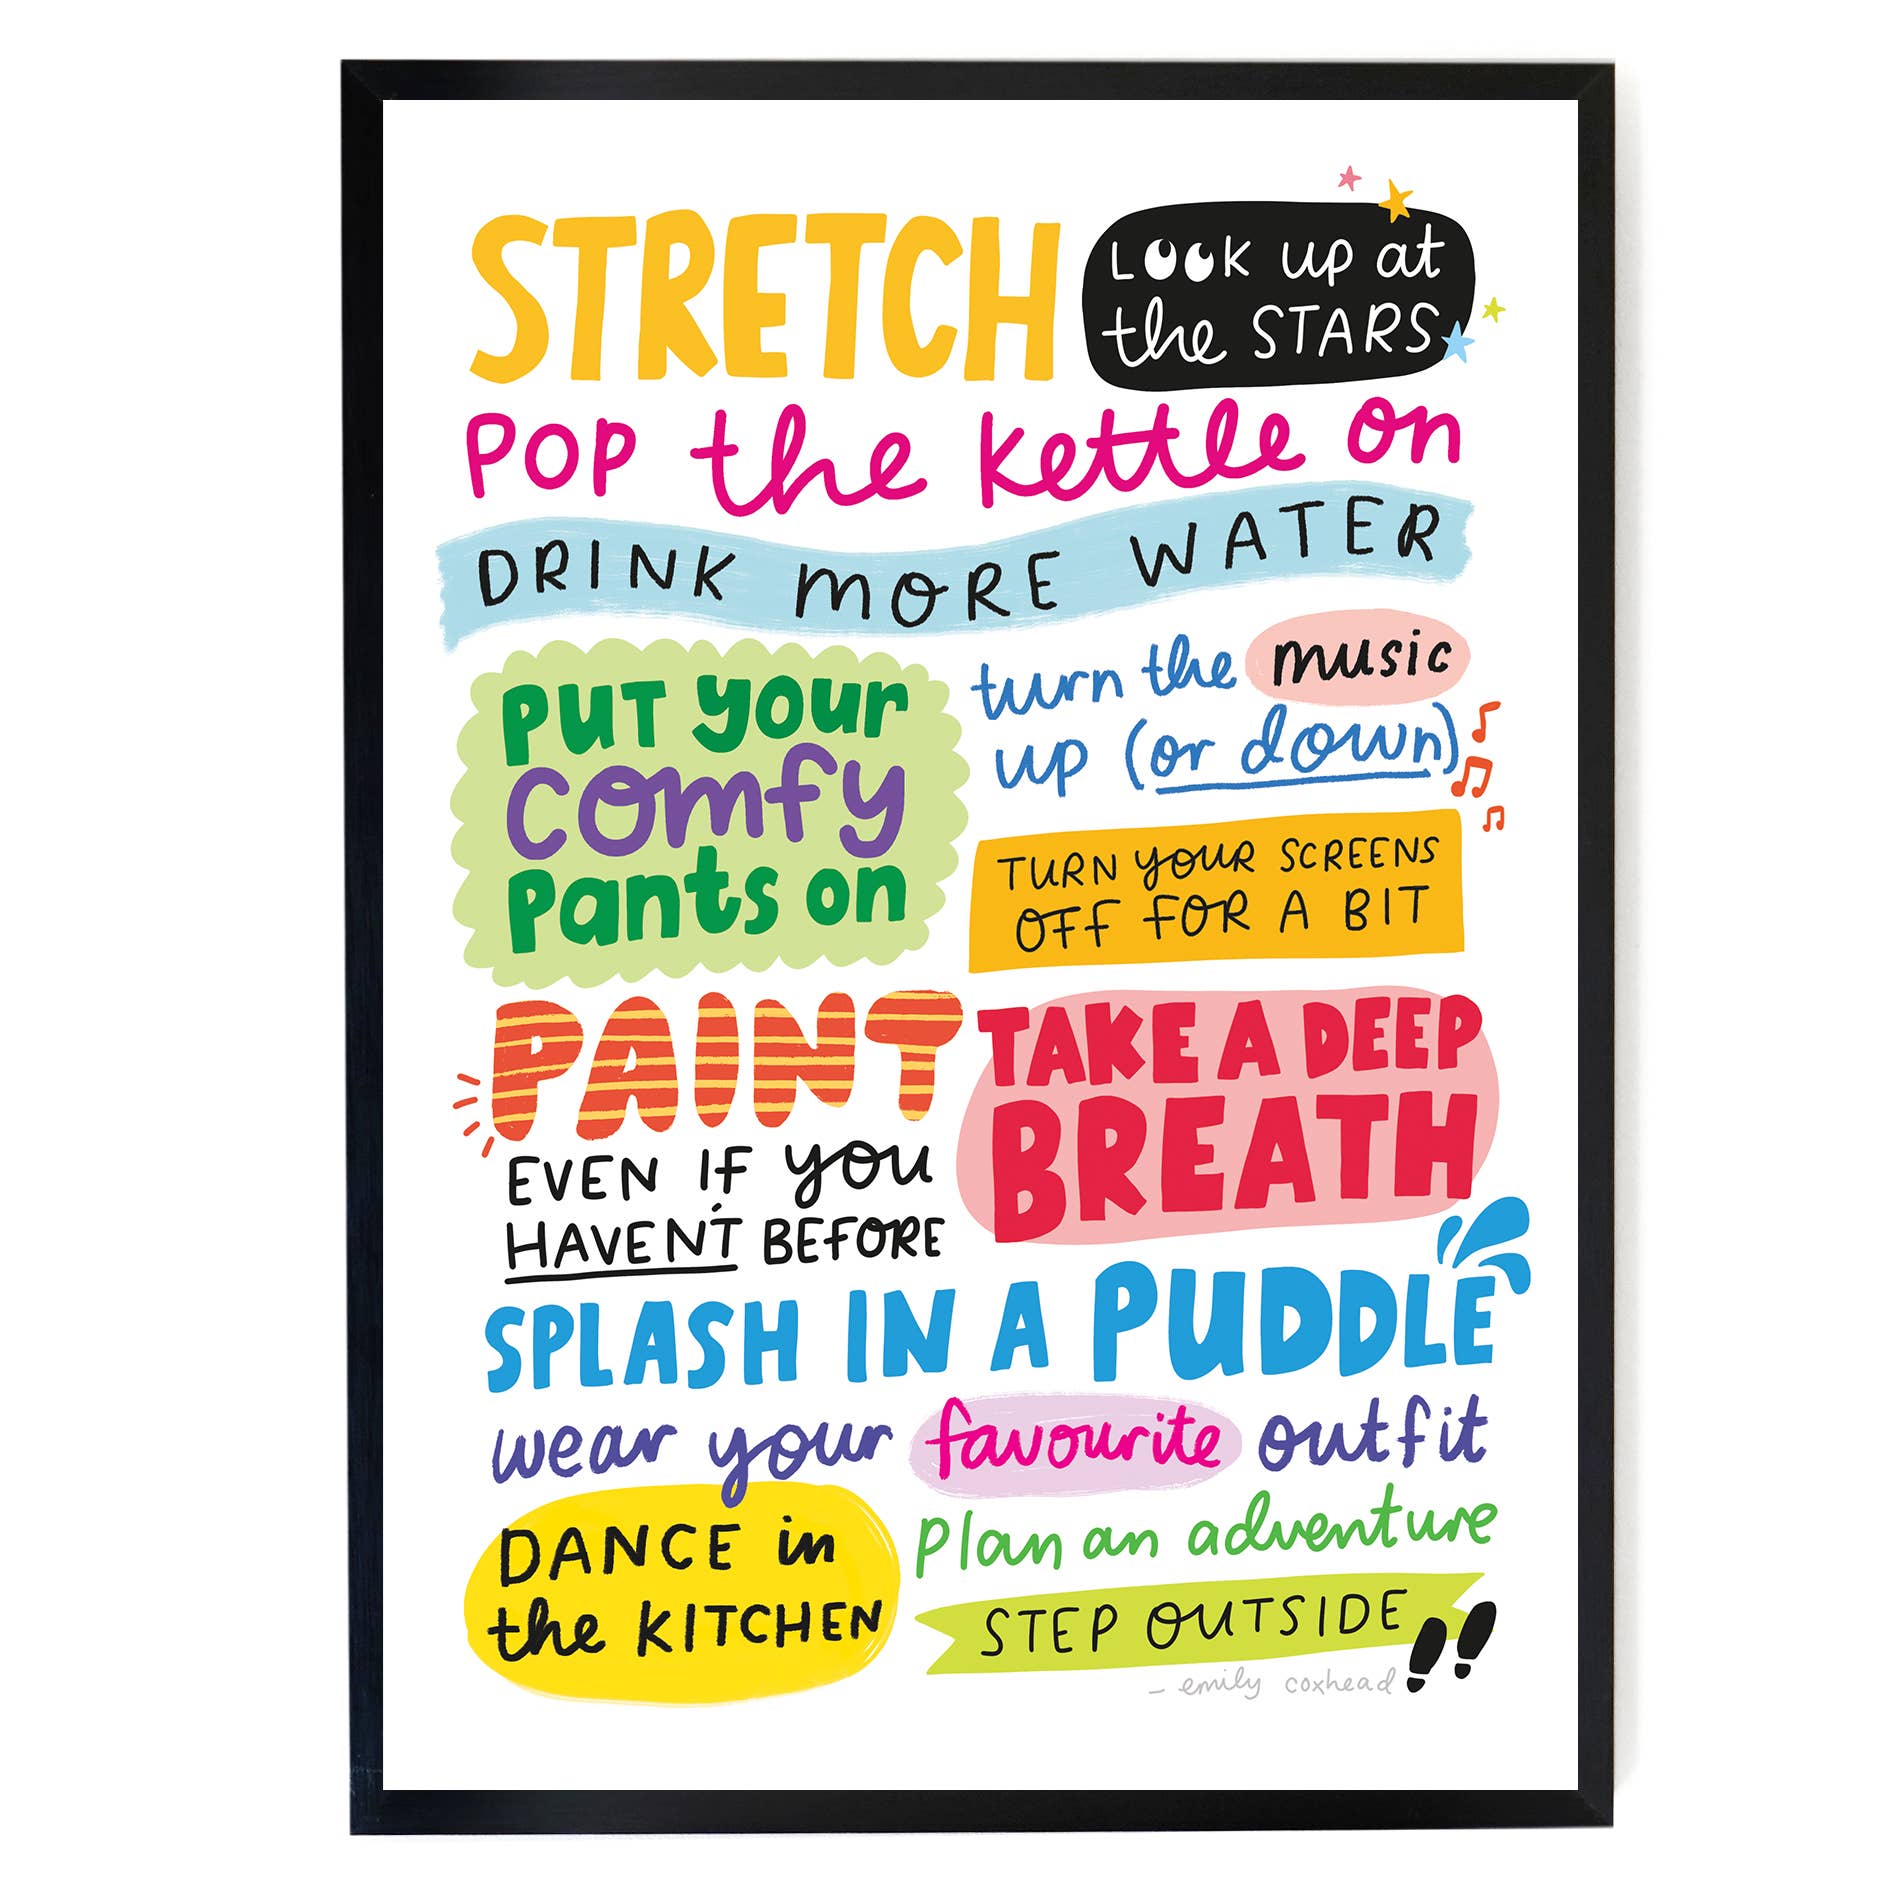 STRETCH
LOOK up at
the STARS
POP the kettle on
DRINK MORE WATER
PUT your
comfy
pants on
turn the music
up (or down)
TURN YOUR SCREENS
OFF FOR A BIT
PAINT
EVEN IF YOU
HAVEN'T BEFORE
TAKE A DEEP
BREATH
SPLASH IN A PUDDLE
wear your favourite outfit
DANCE in
the KITCHEN
Plan an adventure
STEP OUTSIDE
- emily coxhead